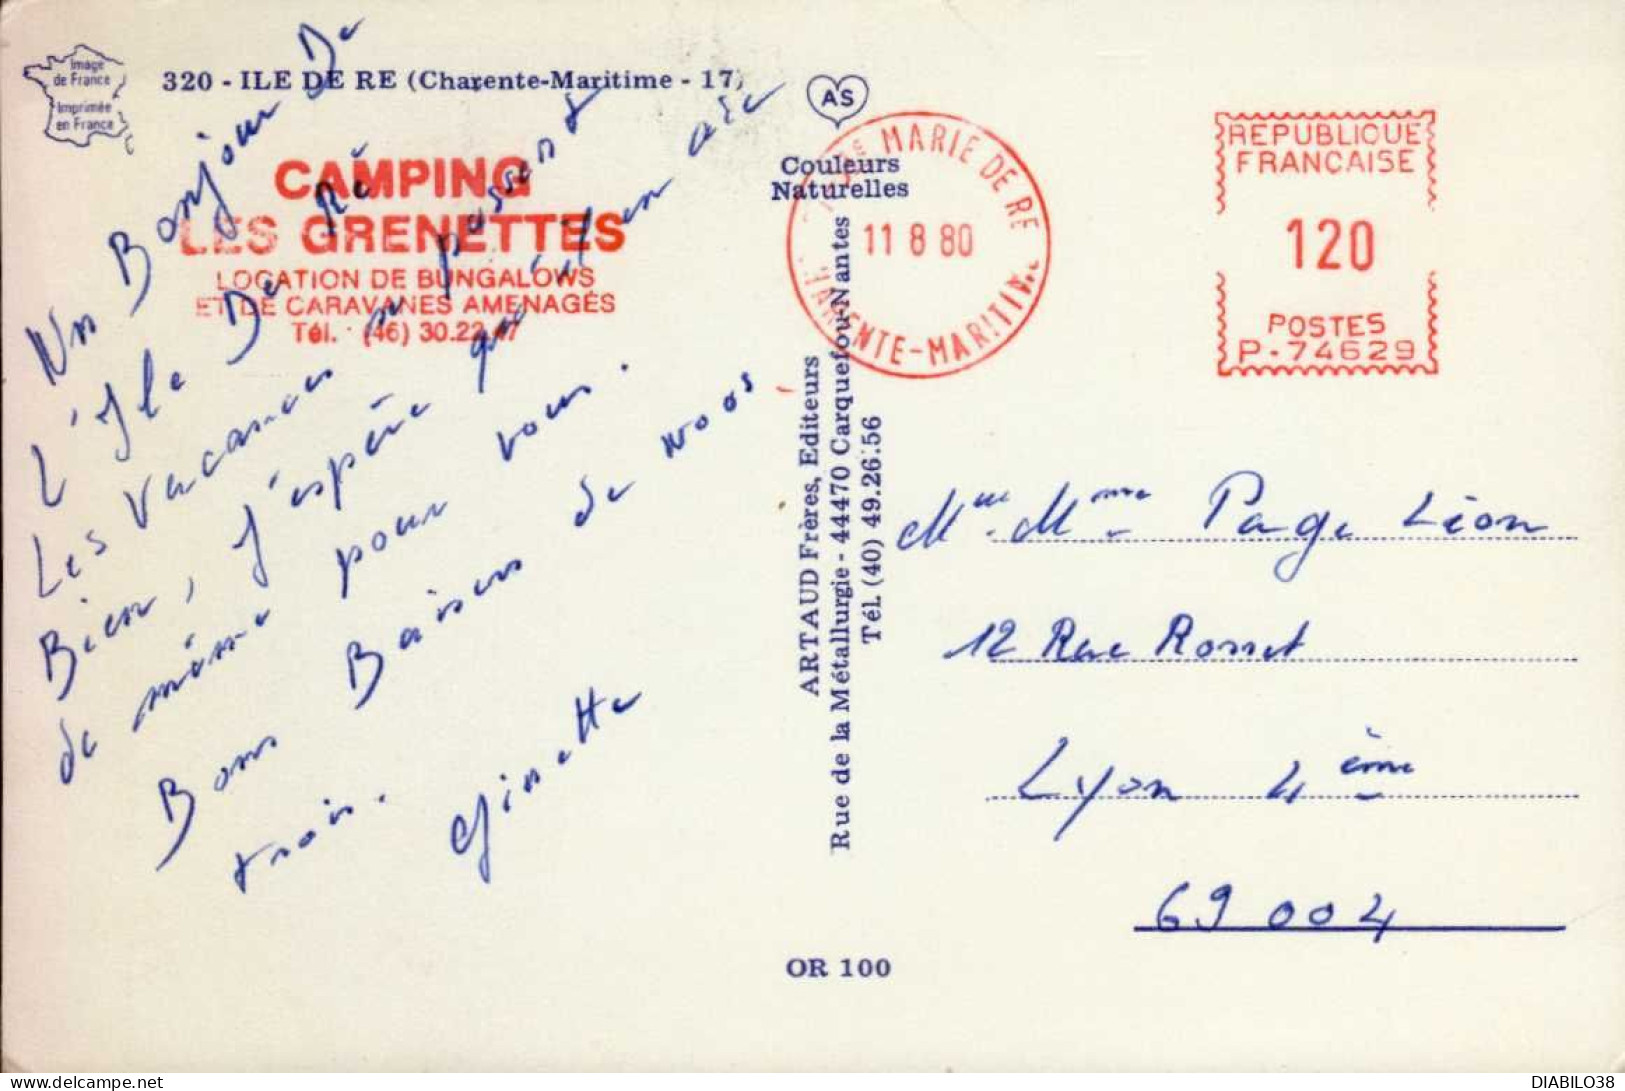 Image
de France
Imprimée
en France
320 - ILE DE RE (Charente-Maritime - 17)
AS
Couleurs
Naturelles
CAMPING
LES GRENETTES
LOCATION DE BUNGALOWS
ET DE CARAVANES AMENAGÉS
Tél. (46) 30.22.47
Un Bonjour De
L'Ile De Ré
Les Vacances se passent
Bien, J'espère qu'il en aie
de même pour vous.
Bons Baisers de nous
trois.
Ginette
STE MARIE DE RE
11 8 80
CHARENTE-MARITIME
REPUBLIQUE
FRANCAISE
120
POSTES
P.74629
ARTAUD Frères, Editeurs
Rue de la Métallurgie - 44470 Carquefou-Nantes
Tél. (40) 49.26.56
Mme Page Léon
12 Rue Rosset
Lyon 4ème
69004
OR 100
DIABILO38